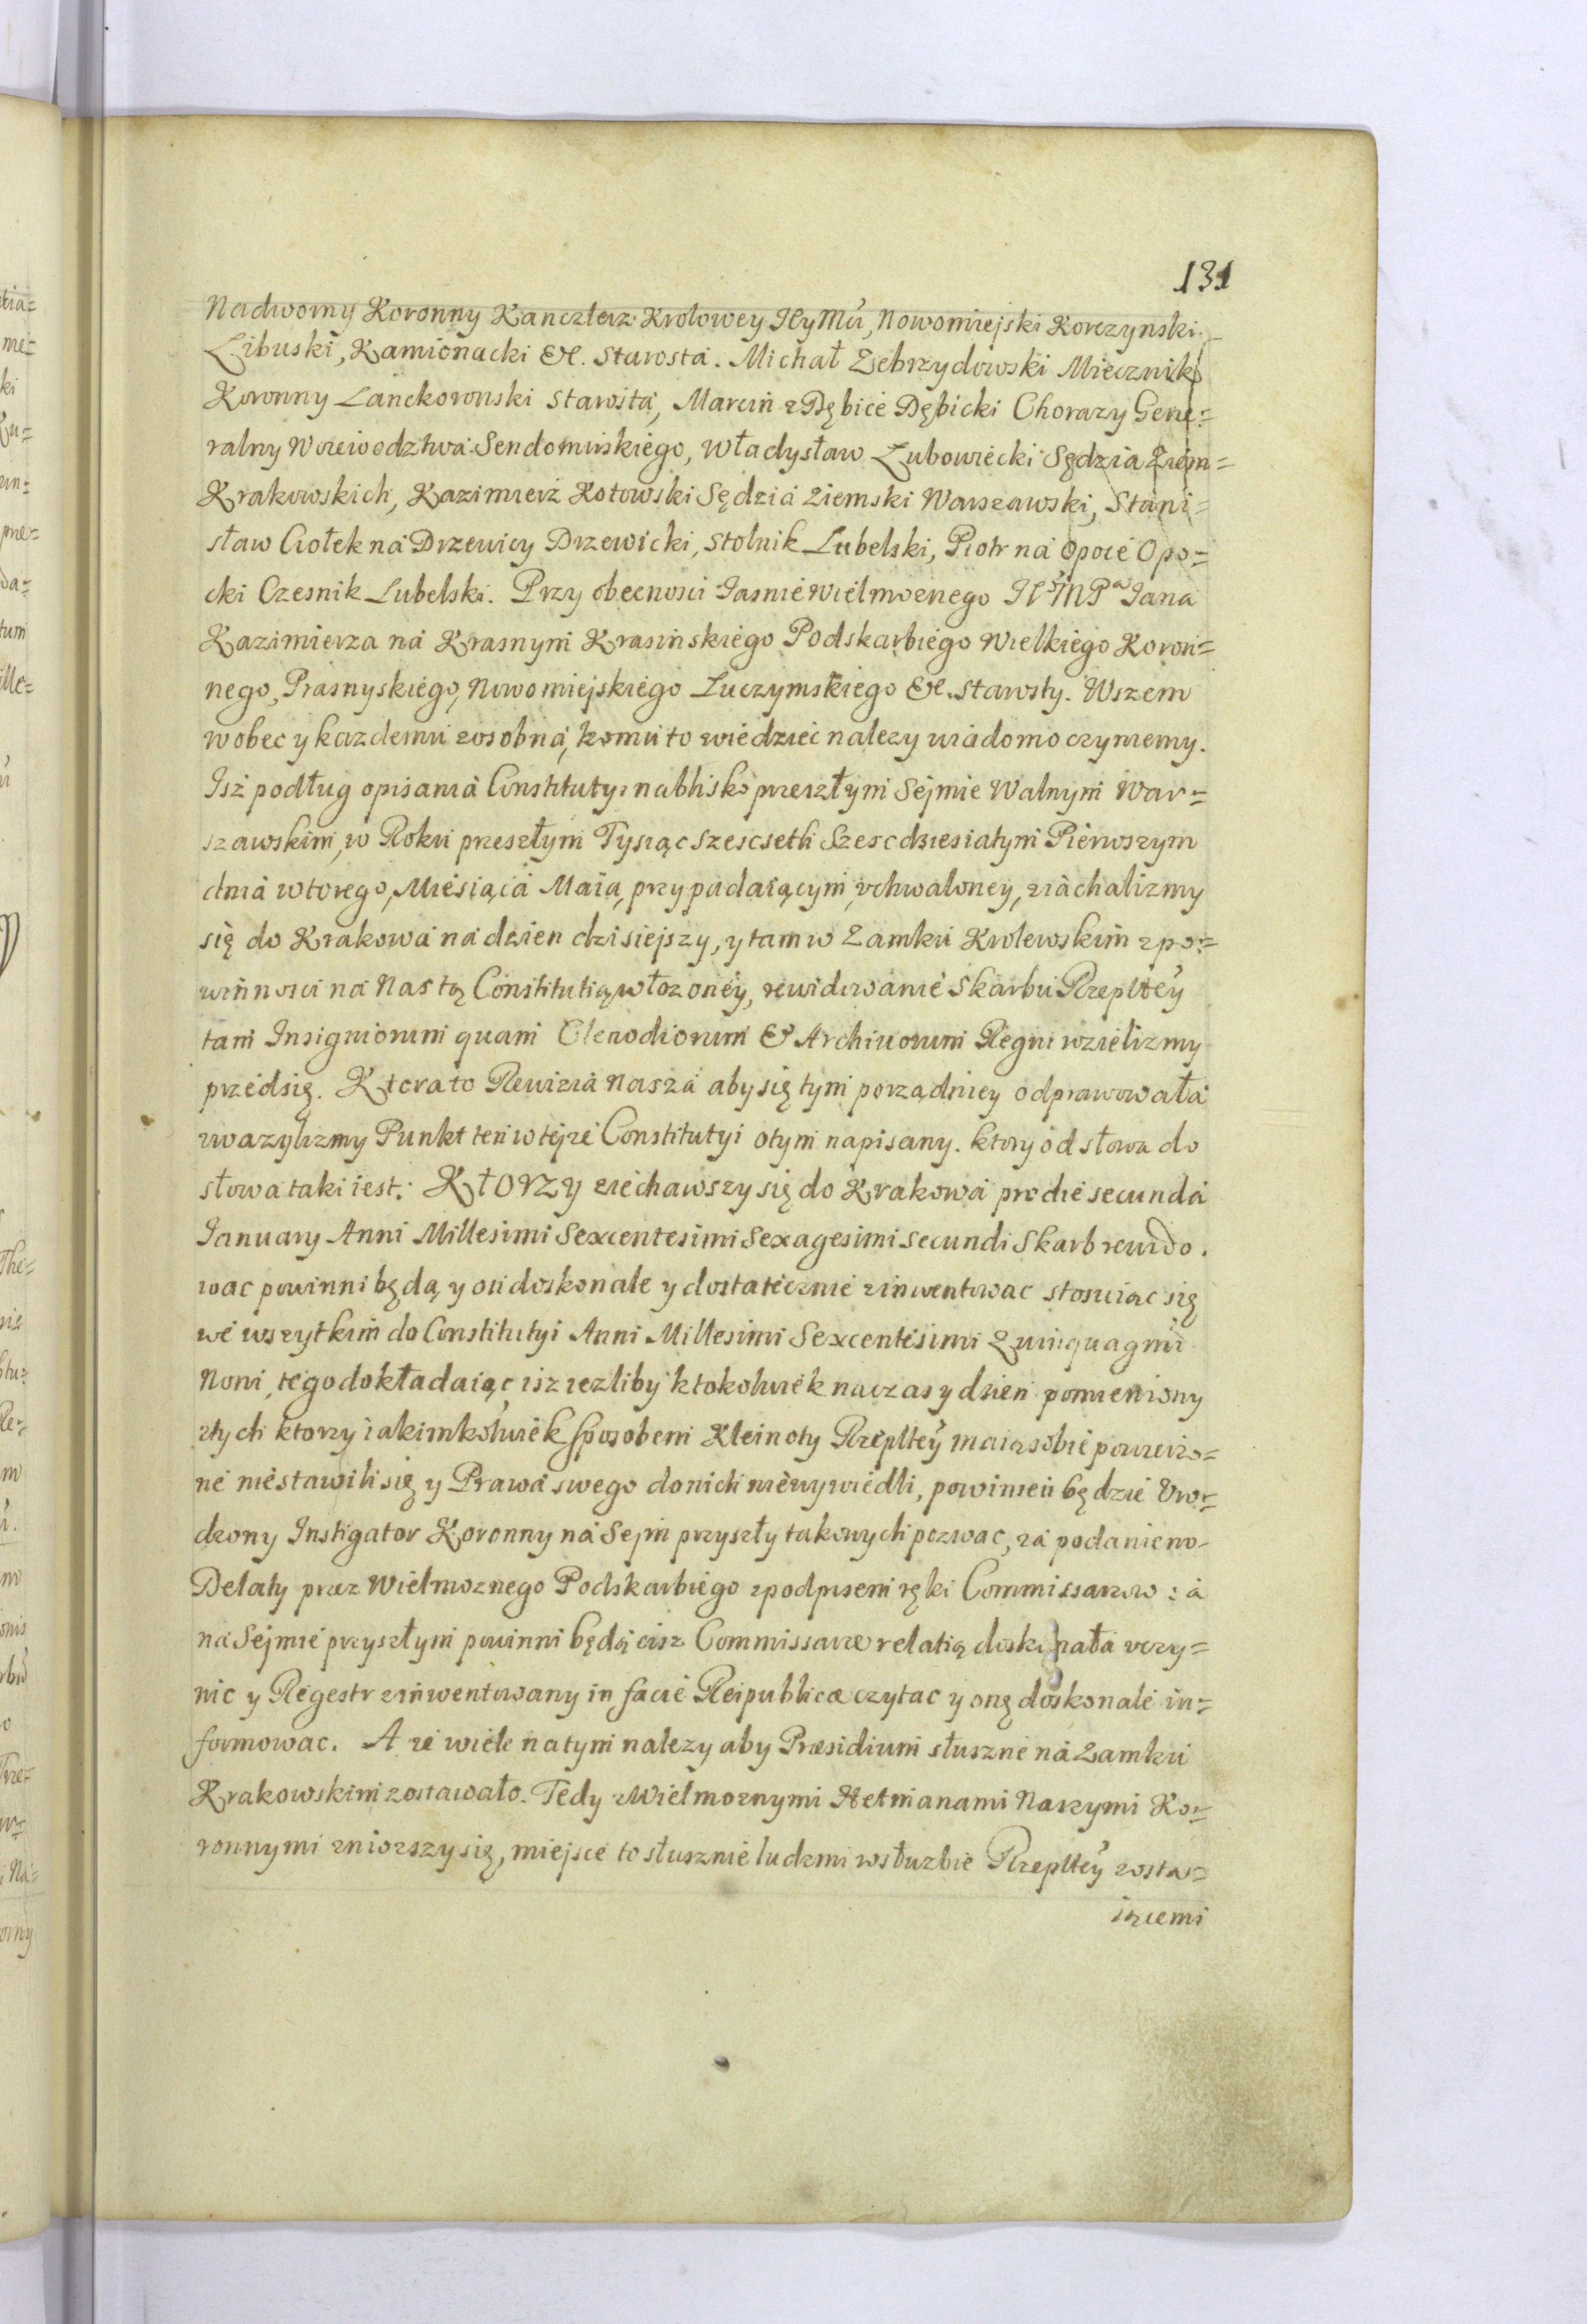 131
Nadworny Koronny Kanczlerz Krolowey JeyMci, Nowomiejski Korczynski
Libuski, Kamionacki &c. Starosta. Michał Zebrzydowski Miecznik
Koronny Lanckoronski Starosta, Marcin z Dębice Dębicki Chorazy Gene=
ralny Woiewodztwa Sendomirskiego, Władysław Lubowiecki Sędzia Ziem=
Krakowskich, Kazimierz Kotowski Sędzia Ziemski Warszawski, Stani=
sław Ciołek na Drzewicy Drzewicki, Stolnik Lubelski, Piotr na Opocé Opo=
cki Czesnik Lubelski. Przy obecnosci Jasnie Wielmoznego JeMPa Jana
Kazimierza na Krasnym Krasinskiego Podskarbiego Wielkiego Koron=
nego, Prasnyskiego, Nowomiejskiego Luczymskiego &c. Starosty. Wszem
wobec y kazdemu zosobna, komu to wiedziec nalezy wiadomo czyniemy.
Isz podług opisania Constitutyi na blisko przeszłym Sejmie Walnym War=
szawskim, w Roku przeszłym Tysiąc szescsetli Szescdziesiatym Pierwszym
dnia wtorego, Miesiąca Maia, przypadaiącym, vchwaloney, ziachalizmy
się do Krakowa na dzien dzisiejszy, y tam w Zamku Krolewskim z po=
winnosci na Nas tą Constitutią włozoney, rewidowanie Skarbu Rzepltey
tam Insigniorum quam Clenodiorum & Archiuorum Regni wzielizmy
przedsię. Ktora to Rewizia Nasza aby się tym porządniey odprawowała
uwazylizmy Punkt ten w tejze Constitutyi o tym napisany. ktory od słowa do
słowa taki iest: Ktorzy ziechawszy się do Krakowa pro die secunda
January Anni Millesimi Sexcentesimi Sexagesimi Secundi Skarb rewido.
wac powinni będą, y on doskonale y dostatecznie zinwentowac stosuiac się
we wszytkim do Constitutyi Anni Millesimi Sexcentesimi Quinquagmi
Noni, tego dokładaiąc isz iezliby ktokolwiek na czas y dzien pomieniony
z tych ktorzy iakimkolwiek sposobem Kleinoty Rzepltey maią sobie powierzo=
ne niestawili się y Prawa swego do nich niewywiedli, powinien będzie Vro=
dzony Instigator Koronny na Sejm przyszły takowych pozwac, za podaniem
Delaty przez Wielmoznego Podskarbiego z podpisem ręki Commissarzow: a
na Sejmie przyszłym powinni będą cisz Commissarze relatią doskonała vczy=
nic y Regestr zinwentowany in facie Reipublicæ czytac y onę doskonale in=
formowac. A ze wiele na tym nalezy aby Præsidium słuszne na Zamku
Krakowskim zostawało. Tedy z Wielmoznymi Hetmanami Naszymi Ko=
ronnymi zniozszy się, miejsce to słusznie ludzmi w słuzbie Rzepltey zosta=
iącemi